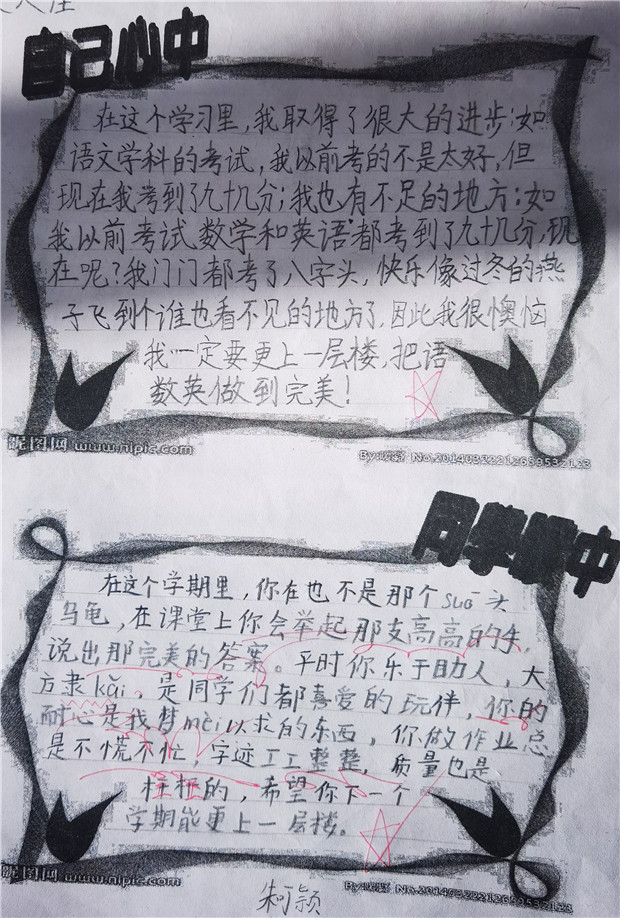 自己心中
在这个学习里,我取得了很大的进步:如
语文学科的考试,我以前考的不是太好,但
现在我考到了九十几分;我也有不足的地方:如
我以前考试数学和英语都考到了九十几分,现
在呢?我门门都考了八字头,快乐像过冬的燕
子飞到个谁也看不见的地方了,因此我很懊恼
我一定要更上一层楼,把语
数英做到完美!
昵图网 www.nipic.com
No.20140322212699532123
同学眼中
在这个学期里,你在也不是那个suō头
乌龟,在课堂上你会举起那支高高的手,
说出那完美的答案。平时你乐于助人,大
方隶kǎi,是同学们都喜爱的玩伴,你的
耐心是我梦mèi以求的东西。你做作业总
是不慌不忙,字迹工工整整,质量也是
杠杠的,希望你下一个
学期能更上一层楼。
昵图网 www.nipic.com
No.20140322212699532123